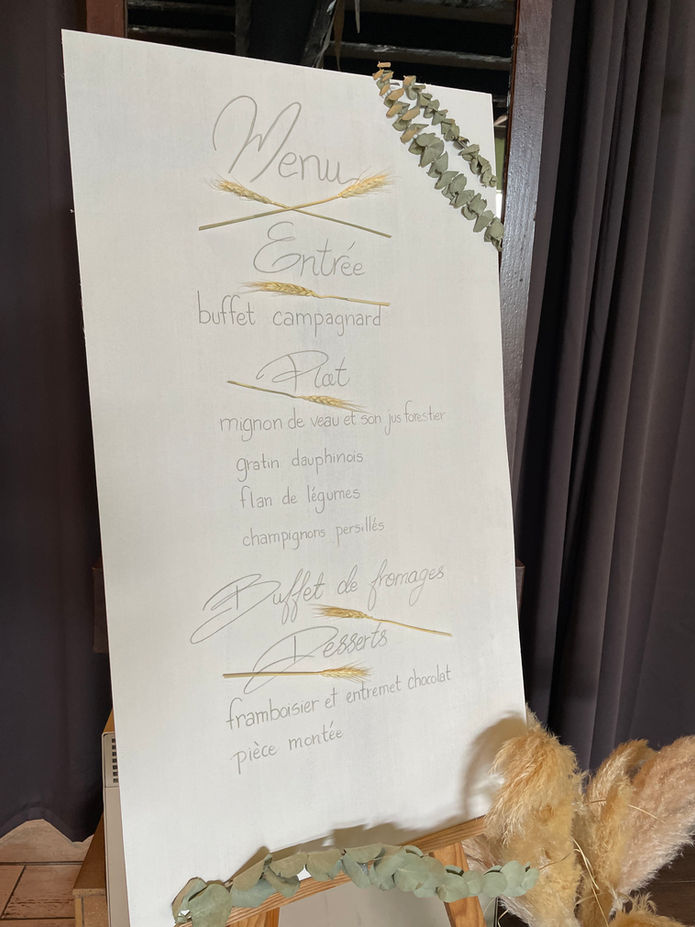 Menu
Entrée
buffet campagnard
Plat
mignon de veau et son jus forestier
gratin dauphinois
flan de légumes
champignons persillés
Buffet de fromages
Desserts
framboisier et entremet chocolat
pièce montée